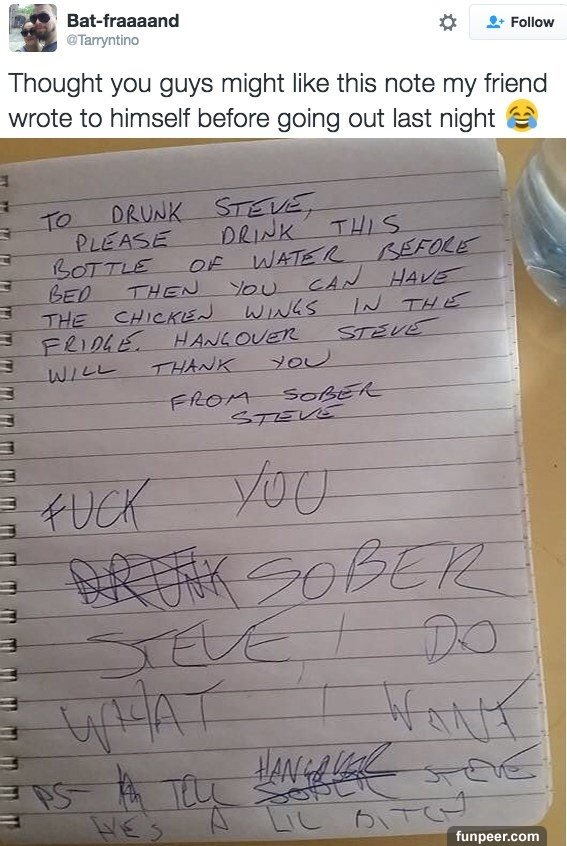 Bat-fraaaand
@Tarryntino
Follow
Thought you guys might like this note my friend
wrote to himself before going out last night 😂
TO DRUNK STEVE,
PLEASE DRINK THIS
BOTTLE OF WATER BEFORE
BED THEN YOU CAN HAVE
THE CHICKEN WINGS IN THE
FRIDGE. HANGOVER STEVE
WILL THANK YOU
FROM SOBER
STEVE
FUCK YOU
DRUNK SOBER
STEVE, I DO
WHAT I WANT
PS- TELL HANGOVER SOBER STEVE
HE'S A LIL BITCH
funpeer.com